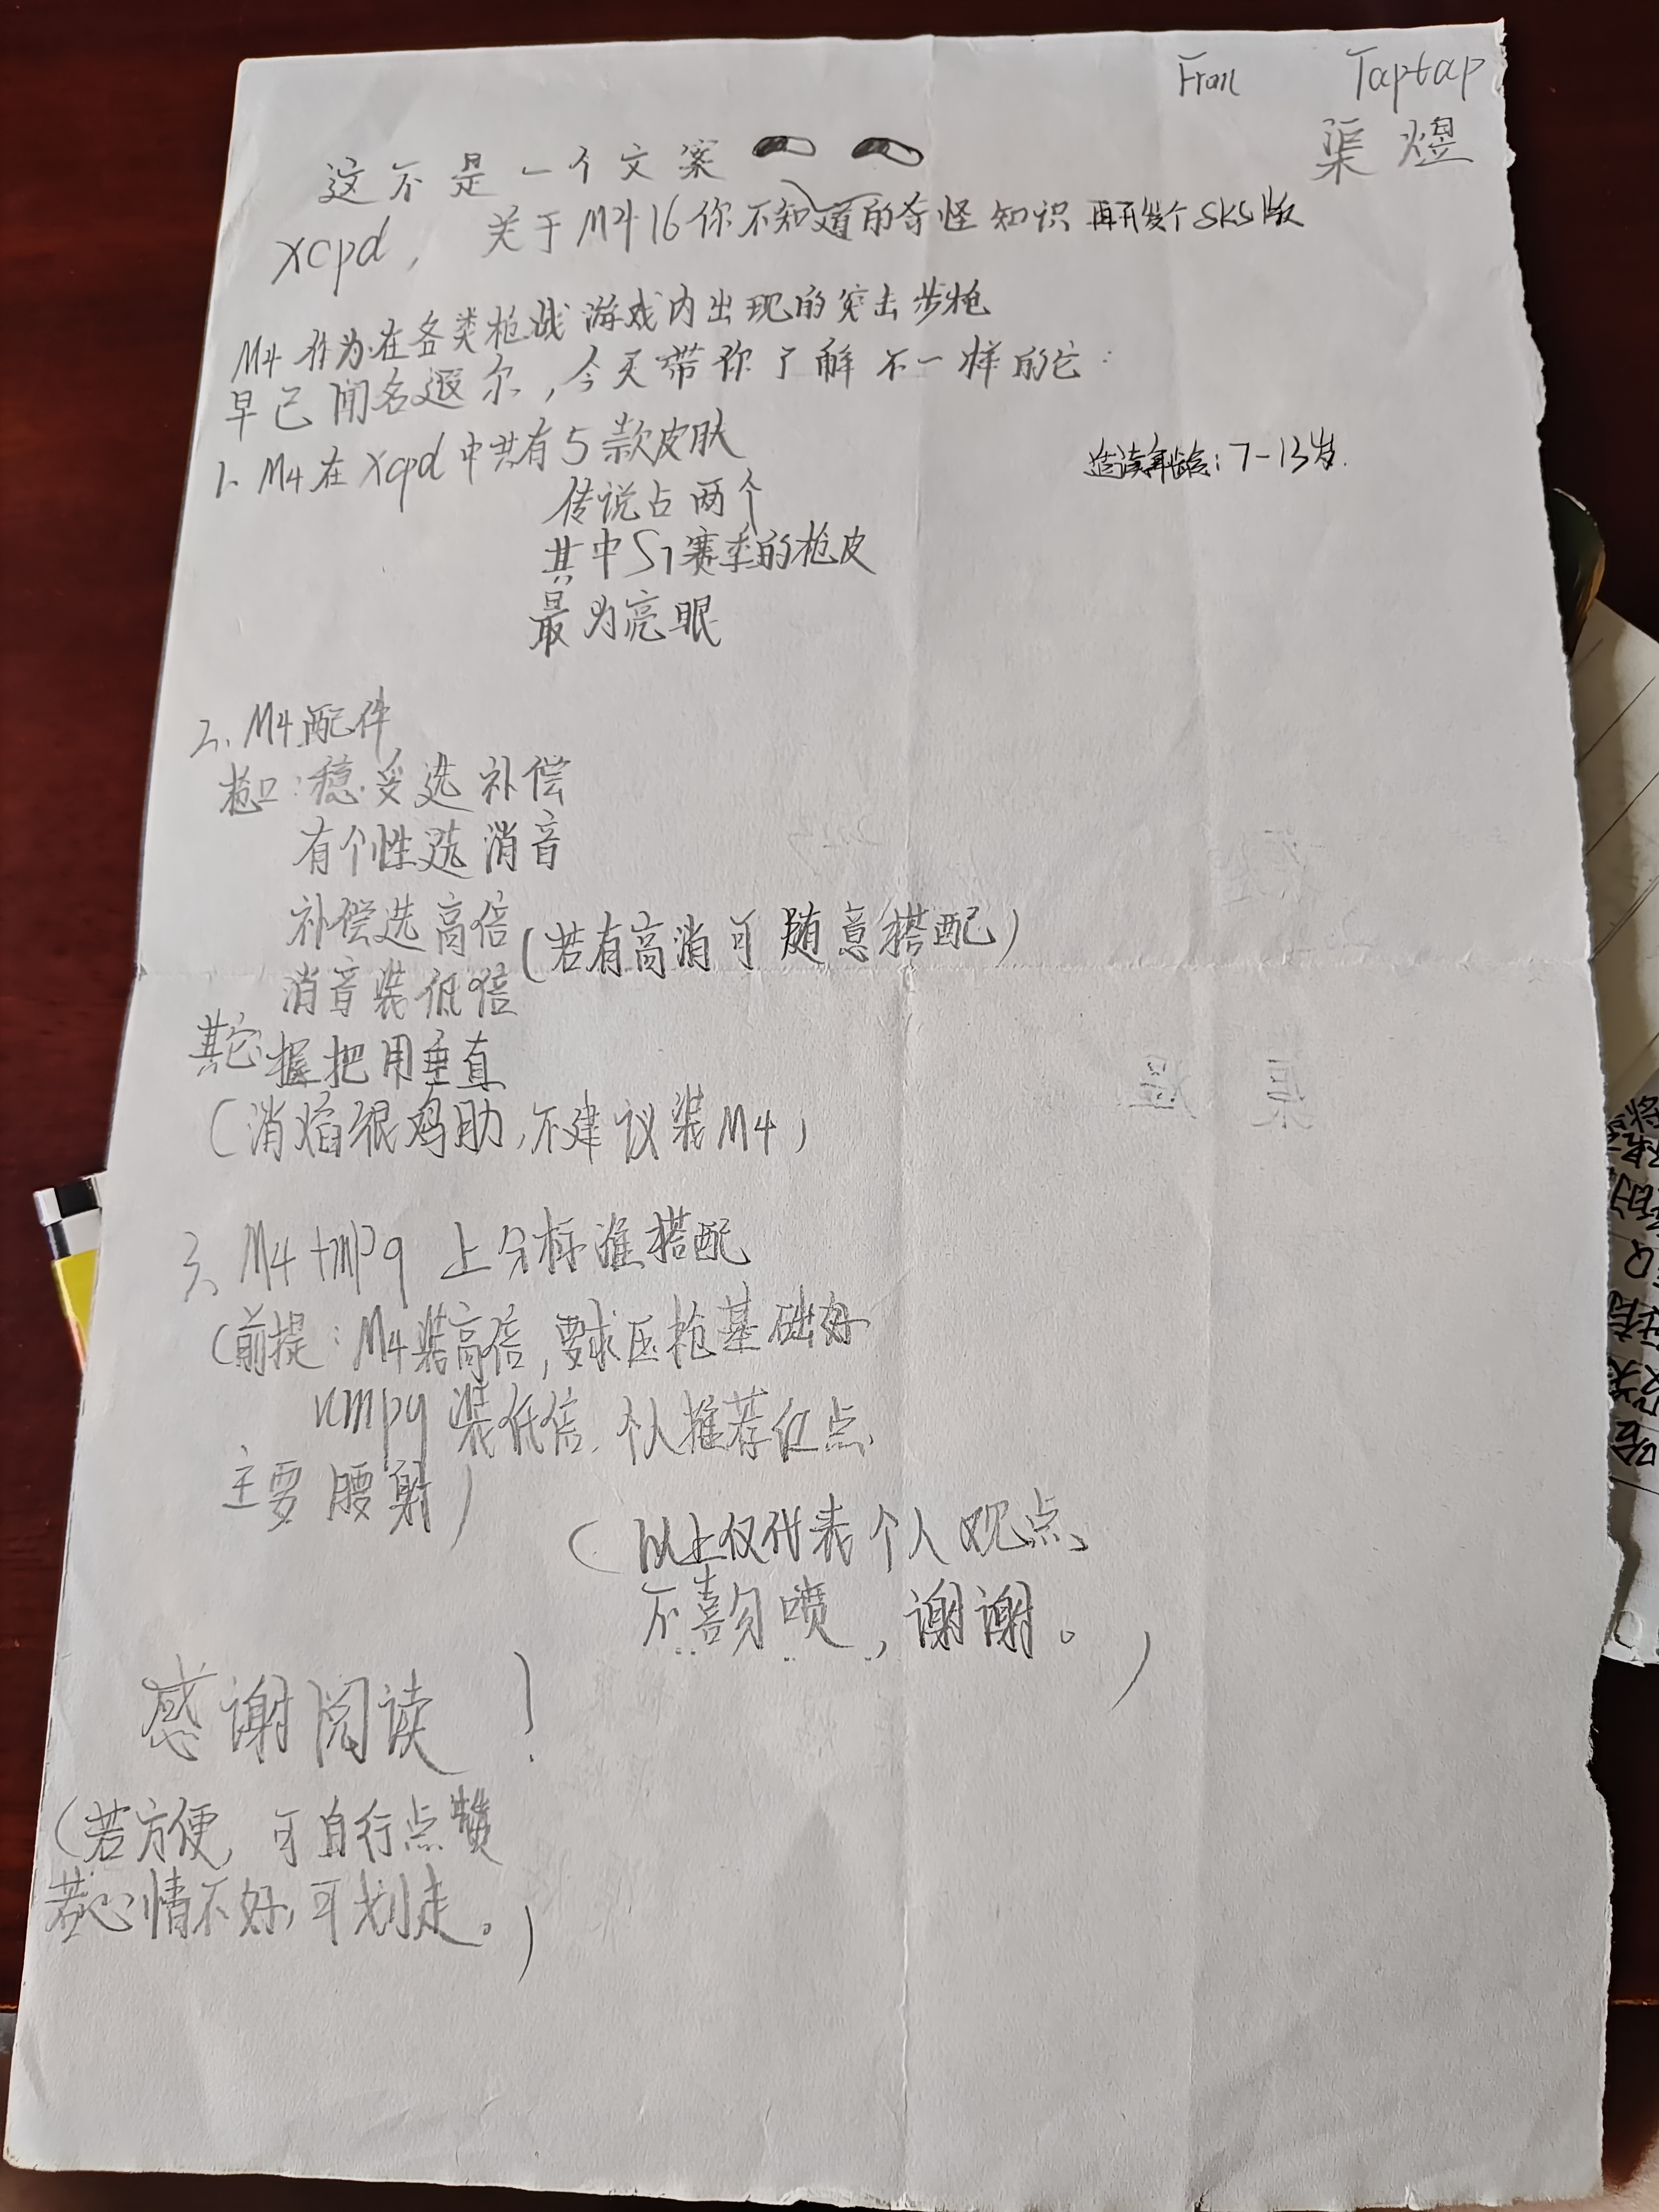 From Taptap
渠煜
这不是一个文案
xcpd, 关于M416你不知道的奇怪知识 再开发个SKS版
M4作为在各类枪战游戏内出现的突击步枪
早已闻名遐尔,今天带你了解不一样的它:
1、M4在xcpd中共有5款皮肤
适读年龄:7-13岁.
传说占两个
其中S1赛季的枪皮
最为亮眼
2、M4配件
枪口:稳妥选补偿
有个性选消音
补偿选高倍
(若有高消可随意搭配)
消音装低倍
其它:握把用垂直
(消焰很鸡肋,不建议装M4)
3、M4+mp9 上分标准搭配
(前提:M4装高倍,要求压枪基础好
mp9装低倍.个人推荐红点
主要腰射)
(以上仅代表个人观点、
不喜勿喷,谢谢。)
感谢阅读!
(若方便,可自行点赞
若心情不好,可划走。)
渠煜